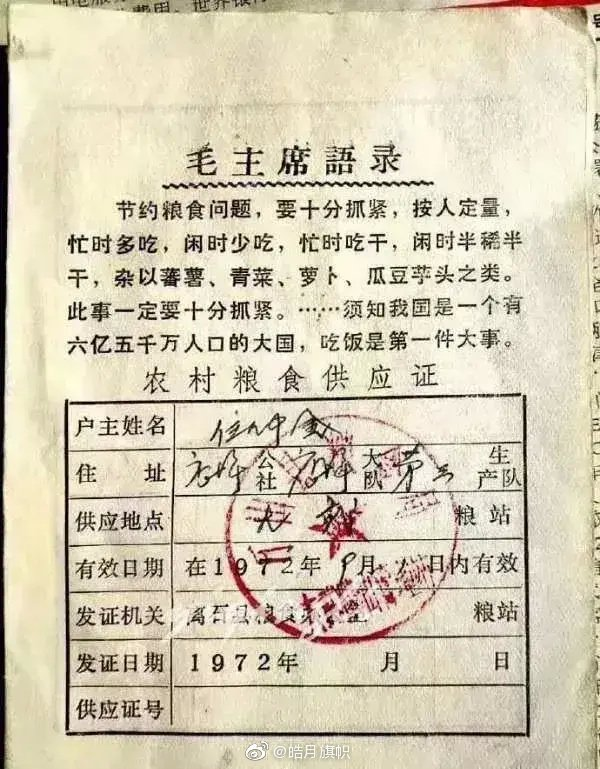 毛主席語录
节约粮食问题，要十分抓紧，按人定量，
忙时多吃，闲时少吃，忙时吃干，闲时半稀半
干，杂以蕃薯、青菜、萝卜、瓜豆芋头之类。
此事一定要十分抓紧。……须知我国是一个有
六亿五千万人口的大国，吃饭是第一件大事。
农村粮食供应证
户主姓名
住 址 公社 大队 第三 生产队
供应地点 粮站
有效日期 在1972年9月 日内有效
发证机关 离石县粮食 粮站
发证日期 1972年 月 日
供应证号
@皓月旗帜